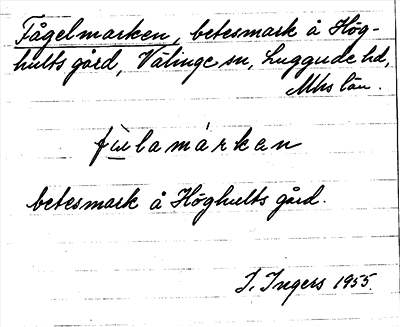 Fågelmarken, betesmark å Hög-
hults gård, Välinge sn, Luggude hd,
Mhs län.
fu̲lamárkan
betesmark å Höghults gård.
I. Ingers 1955.